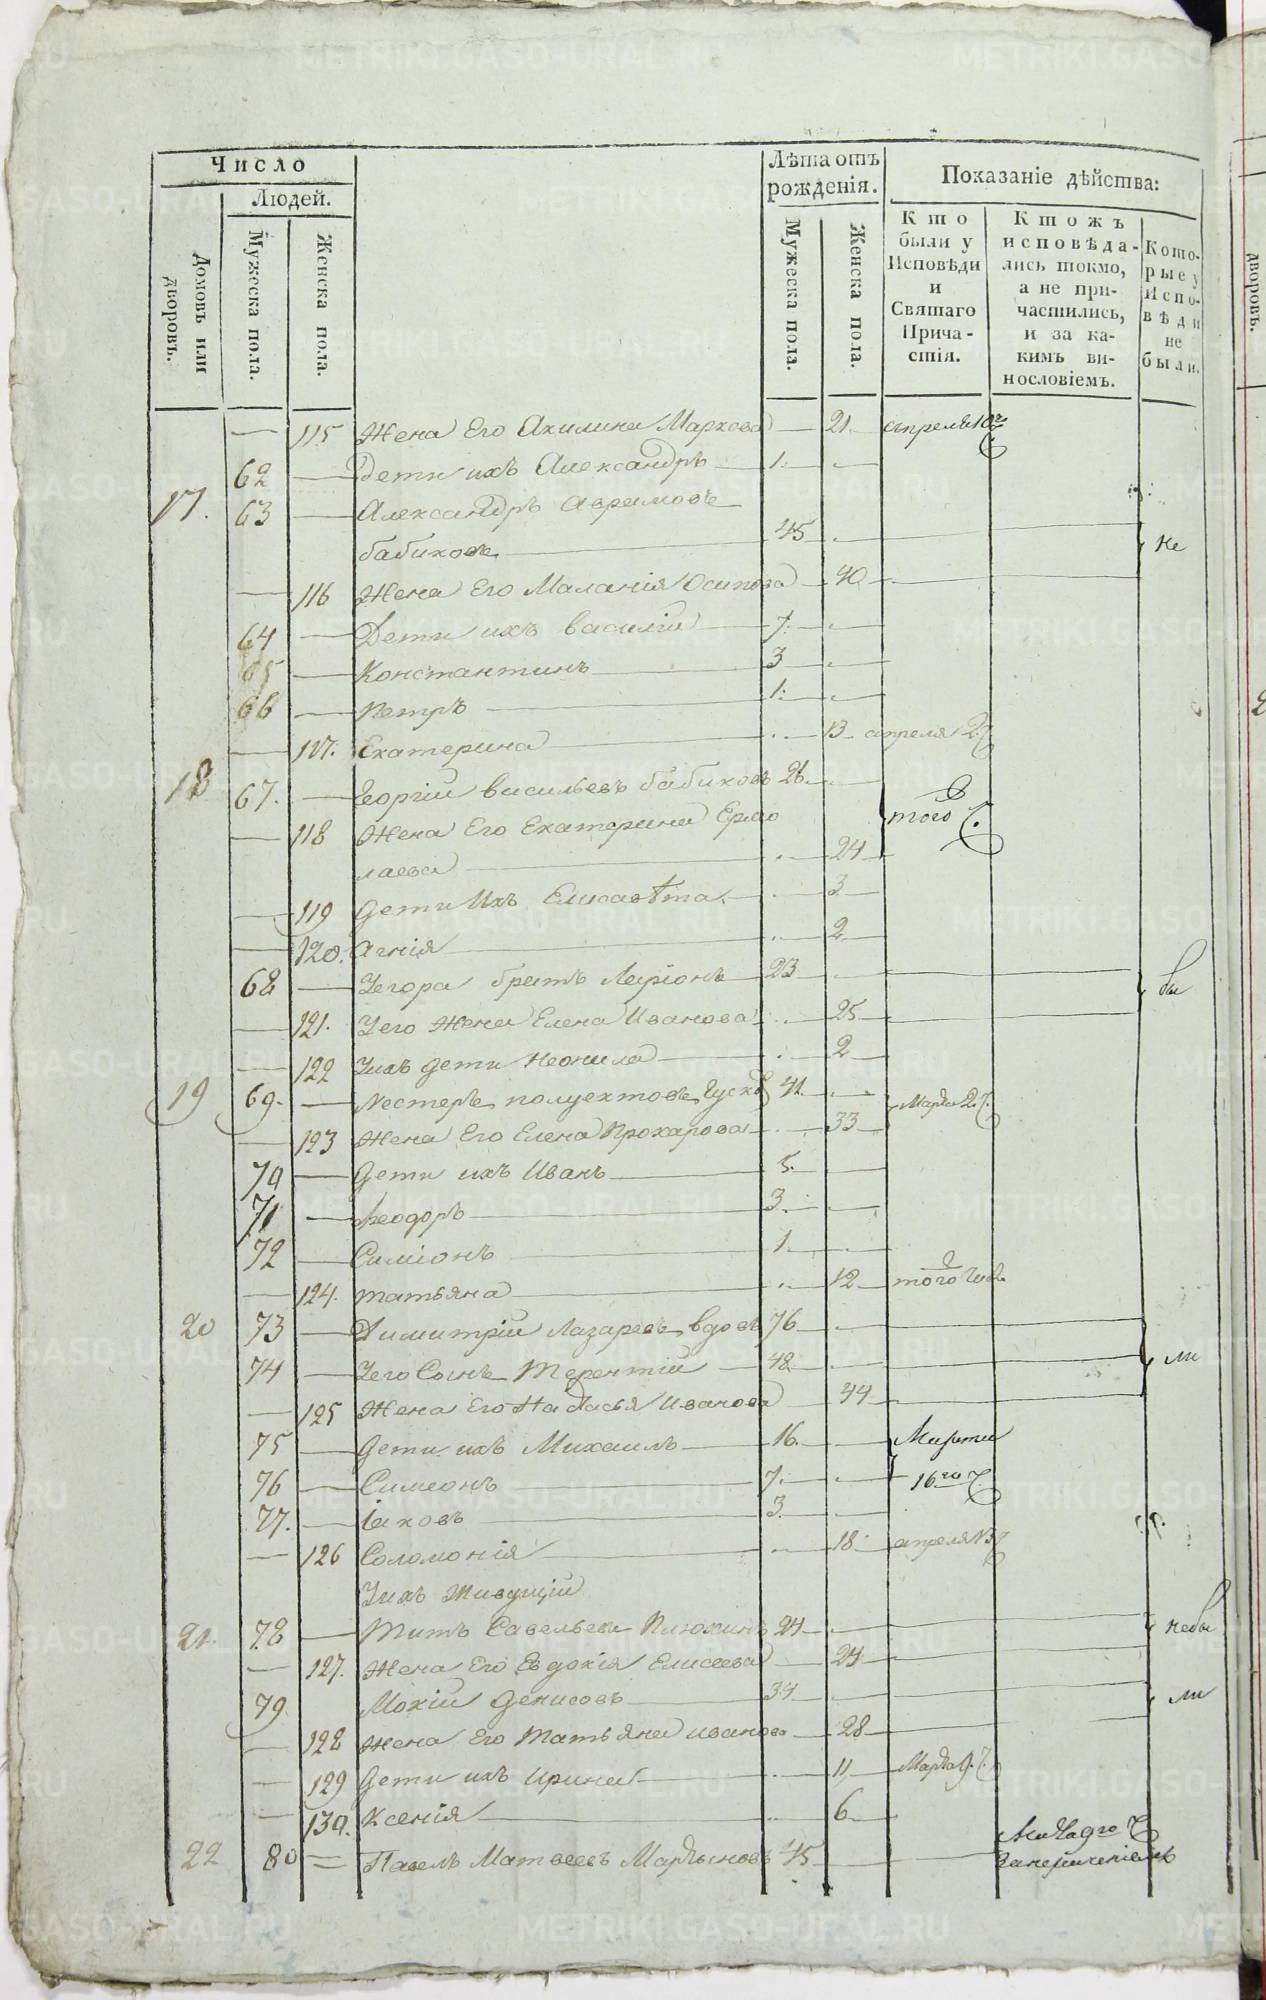 Число
Людей.
Домовъ или дворовъ.
Мужеска пола.
Женска пола.
Лѣта отъ рожденія.
Мужеска пола.
Женска пола.
Показаніе дѣйства:
Кто были у Исповѣди и Святаго Причастія.
Ктожъ исповѣдались токмо, а не причастились, и за какимъ винословіемъ.
Которые у Исповѣди не были.
115 Жена Его Акилина Маркова 21 апреля 10го
62 Дети ихъ Александръ 1
17. 63 Александръ Аврамовъ
бабиковъ 45 не
116 Жена Его Маланія Осипова 40
64 Дети ихъ василій 7
65 Константинъ 3
66 Петръ 1
117. Екатерина 13 апреля 2
18 67. Георгій васильевъ бабиковъ 26
118 Жена Его Екатерина Ермо того
лаева 24
119 Дети Ихъ Елисавѣта 3
120. Агнія 2
68 Уегора братъ Ларіонъ 23 бы
121. Уего Жена Елена Иванова 25
122 Уихъ дети Неонила 2
19 69. Нестеръ полуектовъ Гусковъ 41 Марта 2
123 Жена Его Елена Прохарова 33
70 Дети ихъ Иванъ 5
71 Ѳеодоръ 3
72 Симіонъ 1
124. татьяна 12 того
20 73 Димитрій Лазаревъ вдовъ 76
74 Уего Сынъ Терентій 48 ли
125 Жена Его Настасья Иванова 44
75 Дети ихъ Михаилъ 16 Марта
76 Симеонъ 7 16го
77. Іаковъ 3
126 Соломонія 18 апреля 13
Уихъ Живущіи
21. 78 Титъ Савельевъ Плюхинъ 24 небы
127. Жена Его Евдокія Елисеева 24
79 Мокій Денисовъ 34 ли
128 Жена Его Татьяна иванова 28
129 Дети ихъ Ирина 11 Марта 9
130. Ксенія 6
22 80 Павелъ Матвеевъ Мартыновъ 45
METRIKI.GASO-URAL.RU
дворовъ.